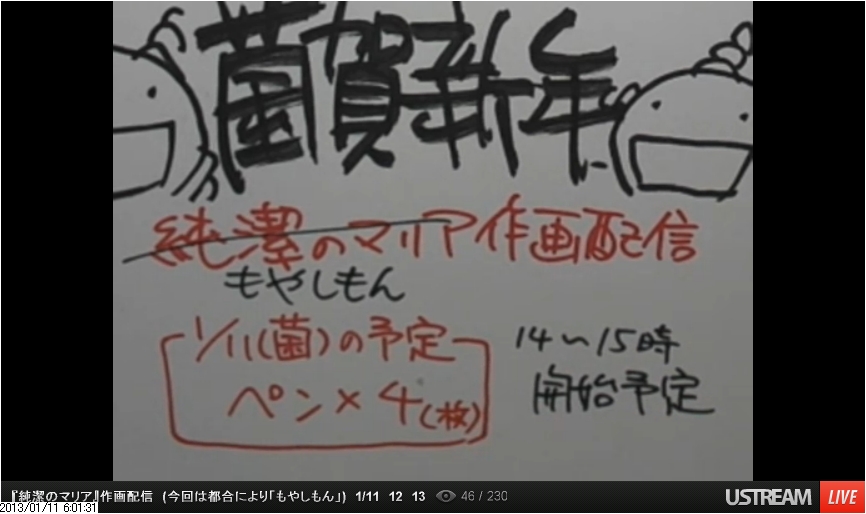 菌賀新年
純潔のマリア作画配信
もやしもん
1/11(菌)の予定
ペン×4(枚)
14~15時
開始予定
『純潔のマリア』作画配信 (今回は都合により「もやしもん」) 1/11 12 13 46 / 230
USTREAM LIVE
2013/01/11 6:01:31